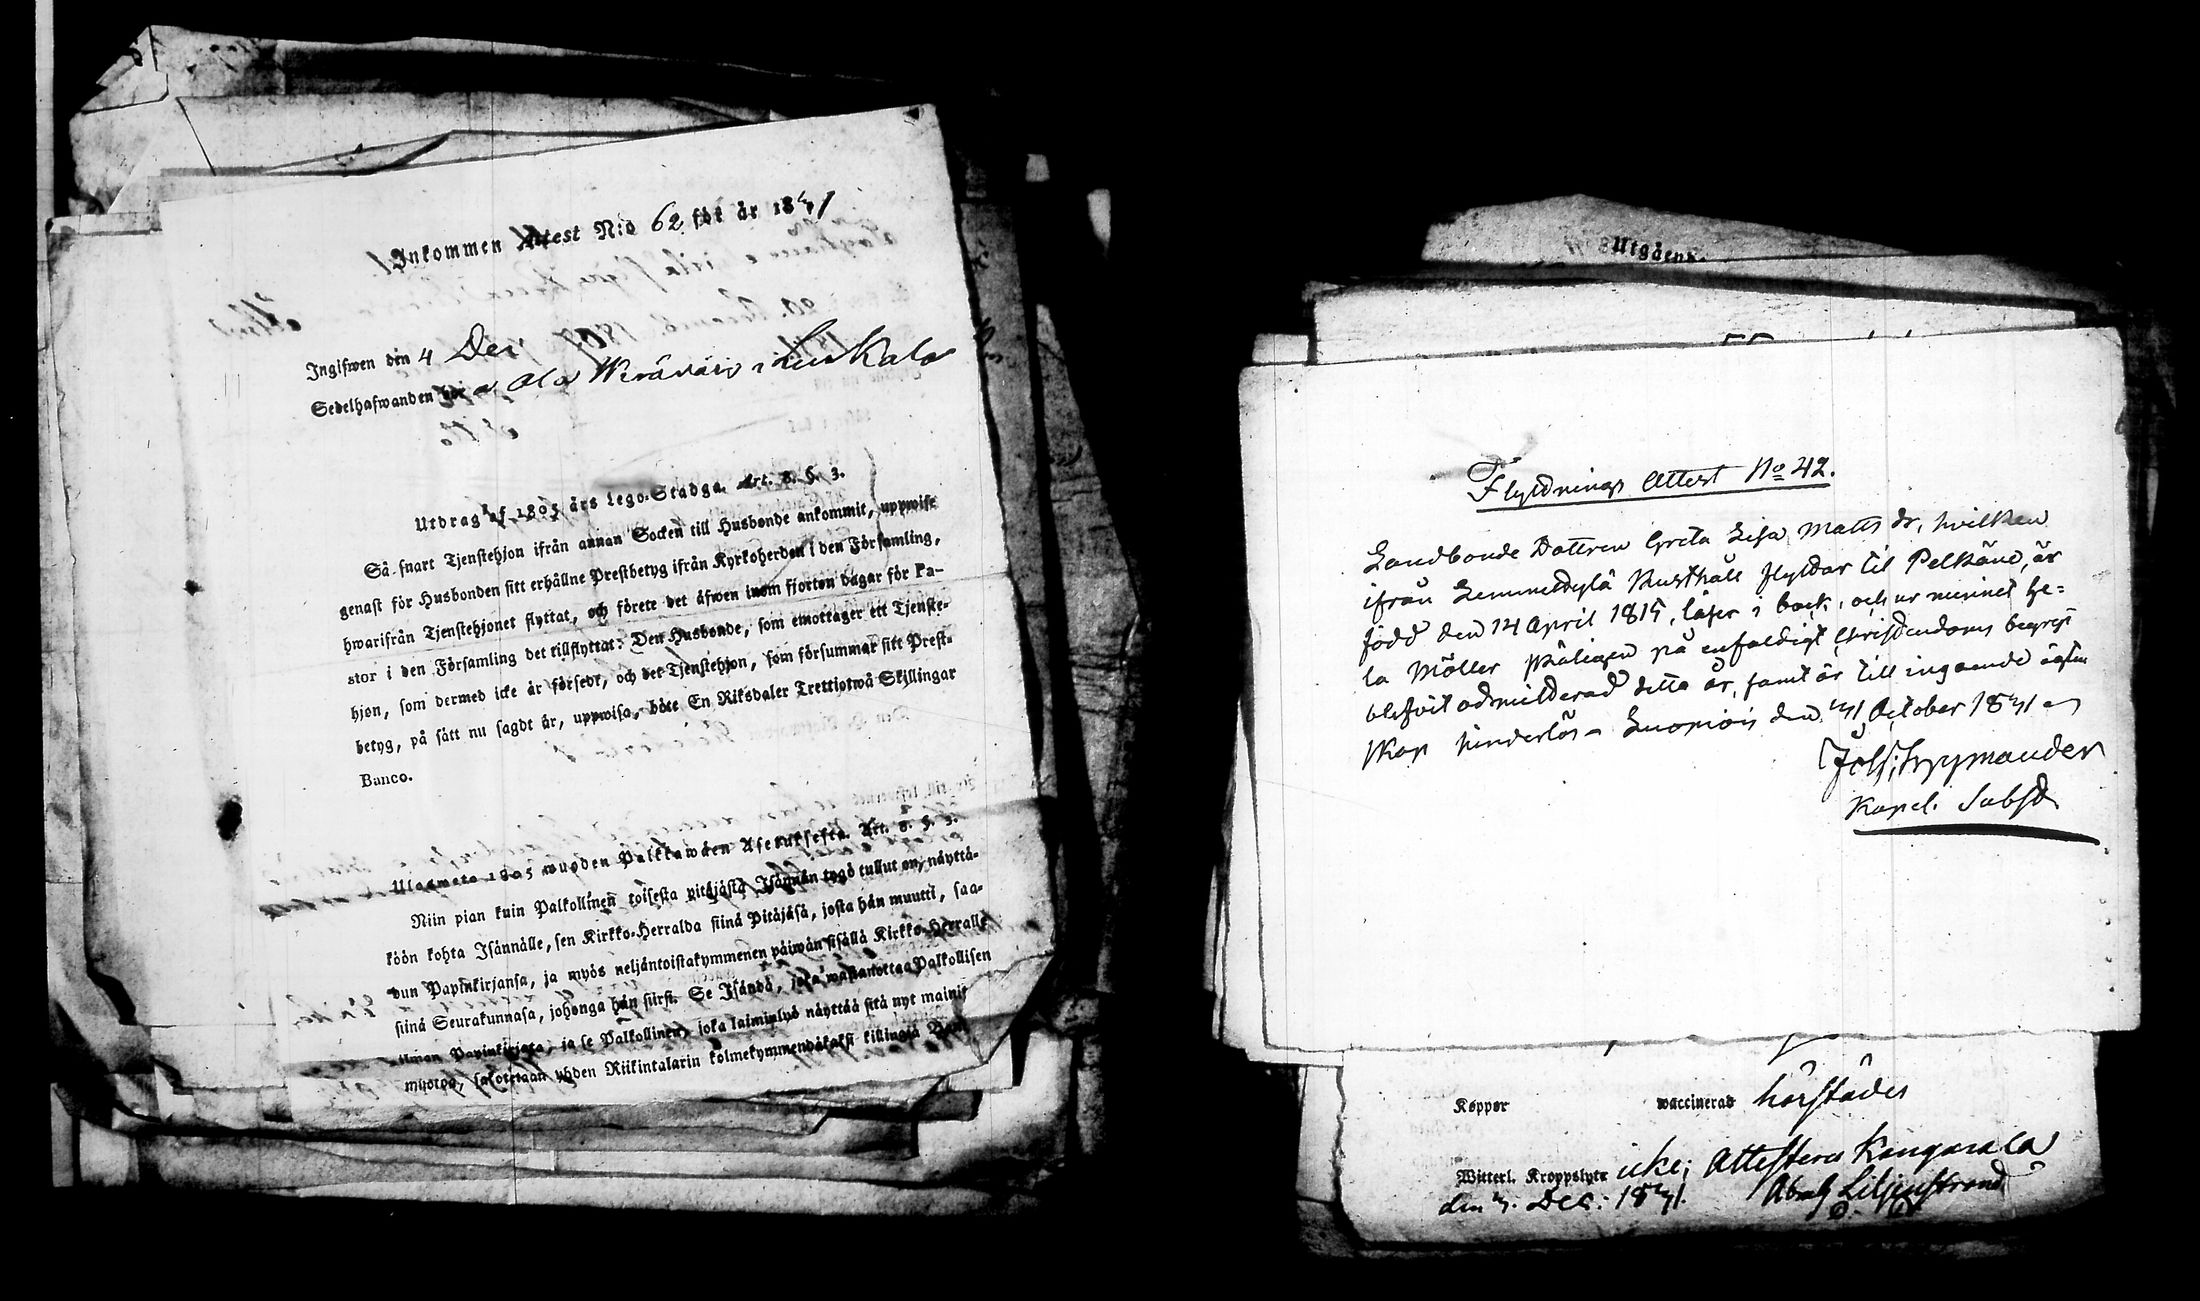 Inkommen Attest N:o 62 för år 1841
Ingifwen den 4 Dec
Sedelhafwanden bor
Utdrag af 1805 års Lego-Stadga. Art. 8. §. 3.
Så snart Tjenstehjon ifrån annan Socken till Husbonde ankommit, uppwise
genast för Husbonden sitt erhållne Prestbetyg ifrån Kyrkoherden i den Församling,
hwarifrån Tjenstehjonet flyttat, och förete det äfwen inom fjorton dagar för Pa-
stor i den Församling det tillflyttat: Den Husbonde, som emottager ett Tjenste-
hjon, som dermed icke är försedt, och det Tjenstehjon, som försummar sitt Prest-
betyg, på sätt nu sagdt är, uppwisa, böte En Riksdaler Trettiotwå Skillingar
Banco.
Ulosweto 1805 wuoden Palkkawäen Asetuksesta. Art. 8. §. 3.
Niin pian kuin Palkollinen toisesta pitäjästä Isännän tygö tullut on, näyttä-
köön kohta Isännälle, sen Kirkko-Herralda siinä Pitäjäsä, josta hän muutti, saa-
dun Papinkirjansa, ja myös neljäntoistakymmenen päiwän sisällä Kirkko-Herralle
siinä Seurakunnasa, johonga hän siirsi. Se Isändä, joka wastanottaa Palkollisen
ilman Papinkirjata, ja se Palkollinen, joka laiminlyö näyttää sitä nyt mainit
muotoa, sakotetaan yhden Riikintalarin kolmekymmendäkaksi killingiä Banc
Utgåen
Flyttnings Attest No 42.
Landbonde Dottren Greta Lisa Matts dr, hvilken
ifrån Lemmettylä Rusthåll flyttar til Pelkäne, är
född den 14 April 1815, läser i bock, och ur minnet he-
la Möller på enfaldigt Christendoms begrep
blifvit admitterad detta år, samt är till ingaende ägten
skap hinderlös - Luopiois den October 1841
Kapel. Subst
Koppor waccinerad
Witterl. Kroppslyte icke; Attesterar Kangasala
den Dec: 1841. Abrah Liljenstrand